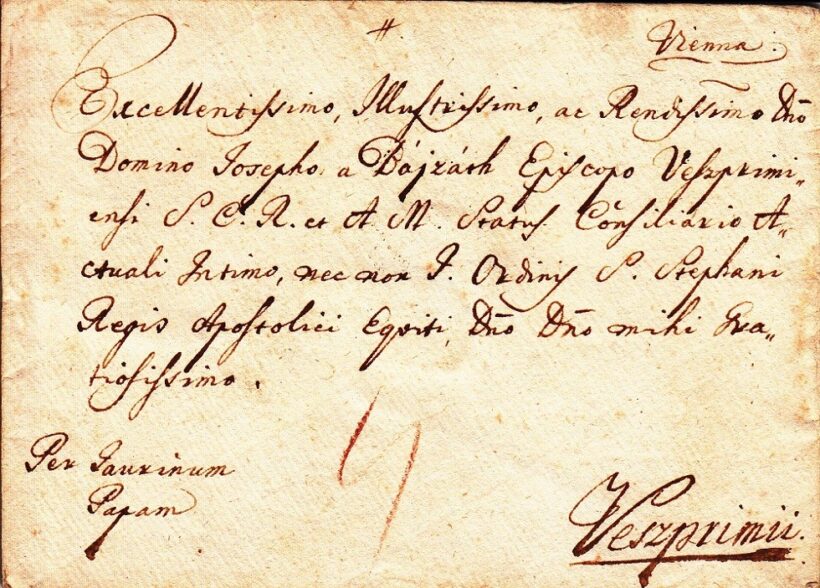 Vienna.
Excellentissimo, Illustrissimo, ac Rendissimo Dno
Domino Josepho a Bájzáth Episcopo Veszprimi„
ensi S. C. R. et A M. Status Consiliario A„
ctuali Intimo, nec non I. Ordinis S. Stephani
Regis Apostolici Equiti, Dno Dno mihi Gra„
tiosissimo.
Per Jaurinum
Papam
Veszprimii.